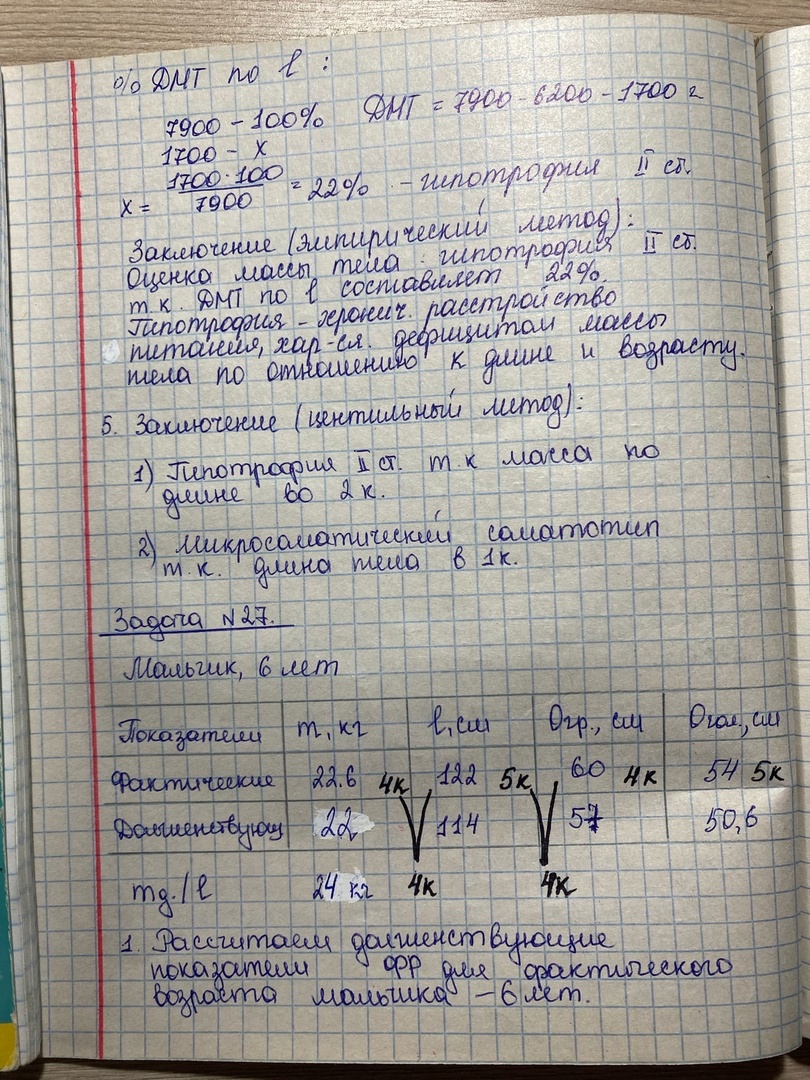 % ДМТ по l :
7900 – 100% ДМТ = 7900 - 6200 - 1700 г
1700 – x
x = 1700 · 100 / 7900 = 22% – гипотрофия II ст.
Заключение (эмпирический метод):
Оценка массы тела : гипотрофия II ст.
т.к. ДМТ по l составляет 22%.
Гипотрофия – хронич. расстройство
питания, хар-ся. дефицитом массы
тела по отношению к длине и возрасту.
5. Заключение (центильный метод):
1) Гипотрофия II ст. т.к масса по
длине во 2 к.
2) Микросоматический соматотип
т.к. длина тела в 1к.
Задача №27.
Мальчик, 6 лет
Показатели m, кг l, см Огр., см Огол., см
Фактические 22.6 4к 122 5к 60 4к 54 5к
Долженствующ 22 114 57 50,6
mд./l 24 кг 4к 4к
1. Рассчитаем долженствующие
показатели ФР для фактического
возраста мальчика – 6 лет.